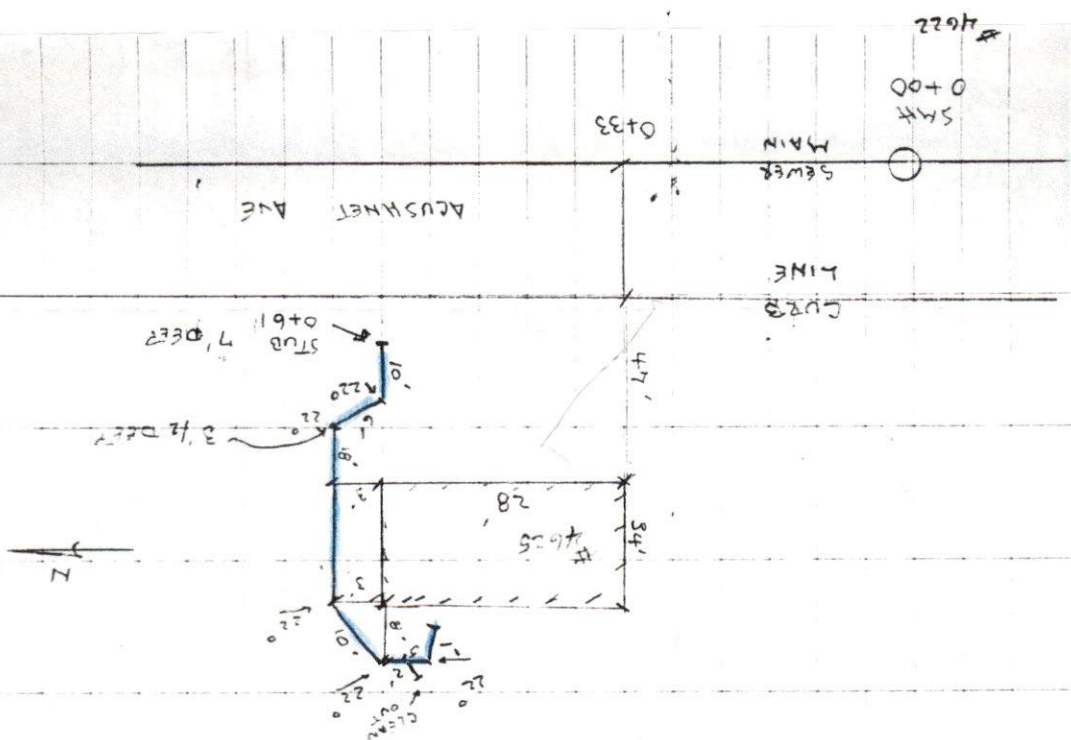 CLEAN
OUT
22°
22°
1'
5'
2'
8'
10'
22°
3'
N
#
4625
34'
28'
3'
18'
3 1/2 DEEP
22°
22°
10'
47'
STUB 7' DEEP
0+61
CURB
LINE
ACUSHNET AVE
SEWER
MAIN
0+33
SMH
0+00
# 4622